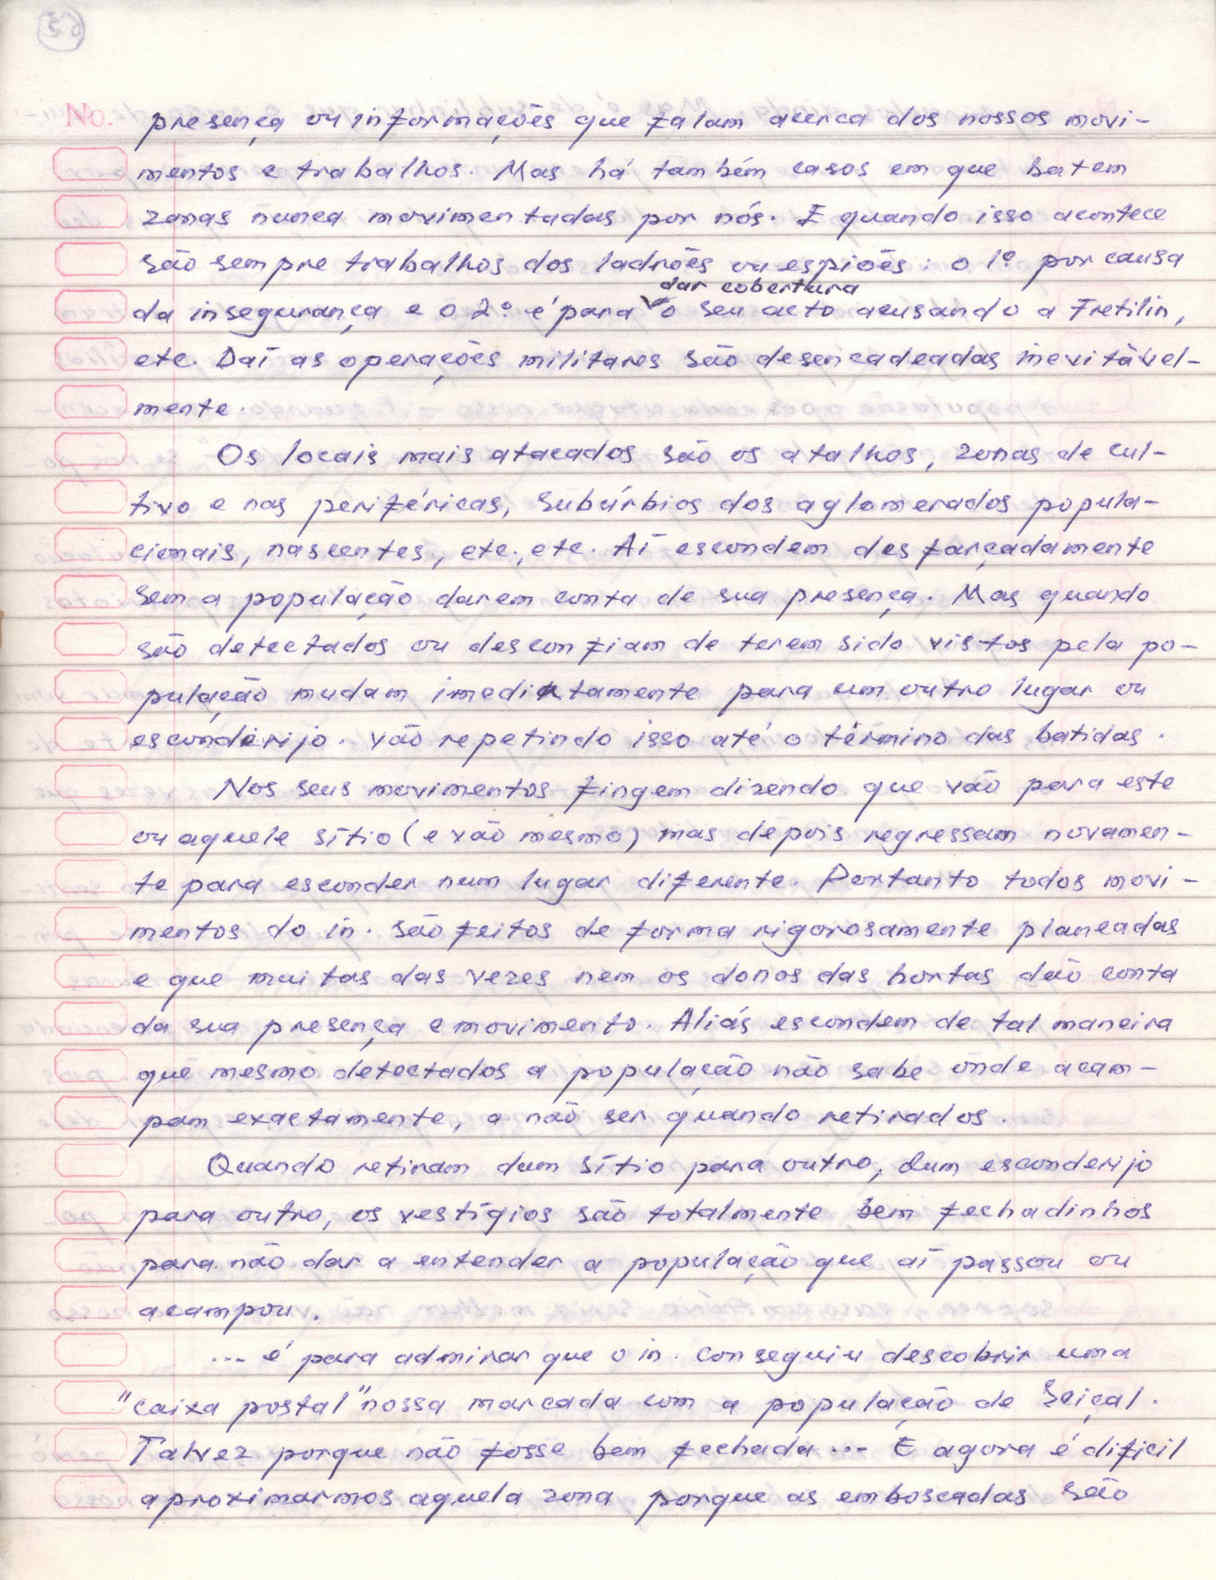 63
No. presença ou informações que falam acerca dos nossos movi-
mentos e trabalhos. Mas há também casos em que batem
zonas nunca movimentadas por nós. E quando isso acontece
são sempre trabalhos dos ladrões ou espiões: o 1º por causa
dar cobertura
da insegurança e o 2º é para o seu acto acusando a Fretilin,
etc. Daí as operações militares são desencadeadas inevitável-
mente.
Os locais mais atacados são os atalhos, zonas de cul-
tivo e nas periféricas, subúrbios dos aglomerados popula-
cionais, nascentes, etc., etc. Aí escondem desfarçadamente
sem a população darem conta de sua presença. Mas quando
são detectados ou desconfiam de terem sido vistos pela po-
pulação mudam imediatamente para um outro lugar ou
esconderijo. Vão repetindo isso até o término das batidas.
Nos seus movimentos fingem dizendo que vão para este
ou aquele sítio (e vão mesmo) mas depois regressam novamen-
te para esconder num lugar diferente. Portanto todos movi-
mentos do in. são feitos de forma rigorosamente planeadas
e que muitas das vezes nem os donos das hortas dão conta
da sua presença e movimento. Aliás escondem de tal maneira
que mesmo detectados a população não sabe onde acam-
pam exactamente, a não ser quando retirados.
Quando retiram dum sítio para outro, dum esconderijo
para outro, os vestígios são totalmente bem fechadinhos
para não dar a entender a população que aí passou ou
acampou.
... é para admirar que o in. conseguiu descobrir uma
"caixa postal" nossa marcada com a população de Seiçal.
Talvez porque não fosse bem fechada ... E agora é dificil
aproximarmos aquela zona porque as emboscadas são